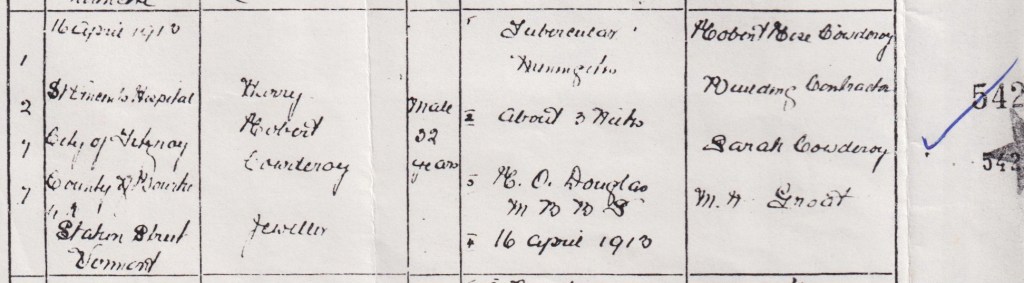 16 April 1913
1
2
7
7
St Vincents Hospital
City of Fitzroy
County of Bourke
Station Street
Vermont
Harry
Robert
Cowderoy
Jeweller
Male
32
years
1
Tubercular
Meningitis
2 About 3 Weeks
3 H. O. Douglas
M B B S
4 16 April 1913
Robert Cowderoy
Building Contractor
Sarah Cowderoy
M. N. Groat
542
542